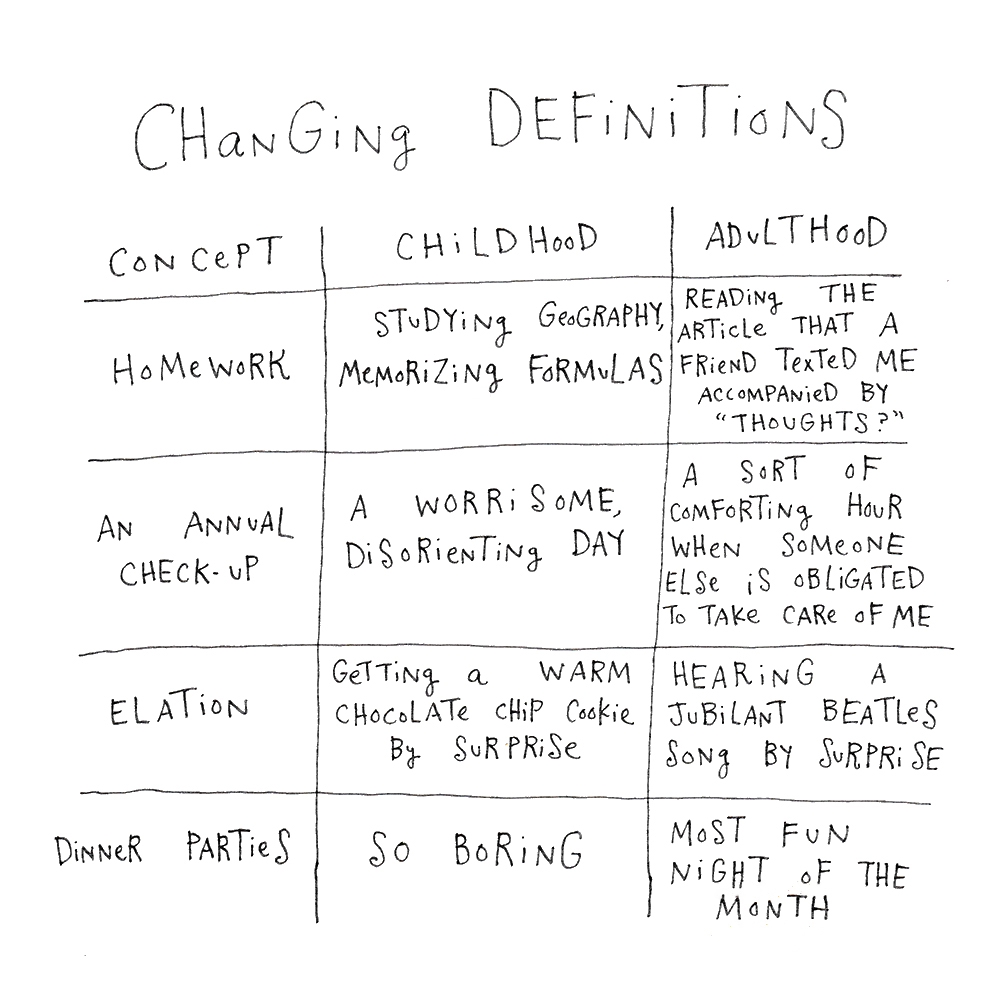 CHANGING DEFINITIONS
CONCEPT
CHILDHOOD
ADULTHOOD
HOMEWORK
STUDYING GEOGRAPHY,
MEMORIZING FORMULAS
READING THE
ARTICLE THAT A
FRIEND TEXTED ME
ACCOMPANIED BY
“THOUGHTS?”
AN ANNUAL
CHECK-UP
A WORRISOME,
DISORIENTING DAY
A SORT OF
COMFORTING HOUR
WHEN SOMEONE
ELSE IS OBLIGATED
TO TAKE CARE OF ME
ELATION
GETTING A WARM
CHOCOLATE CHIP COOKIE
BY SURPRISE
HEARING A
JUBILANT BEATLES
SONG BY SURPRISE
DINNER PARTIES
SO BORING
MOST FUN
NIGHT OF THE
MONTH